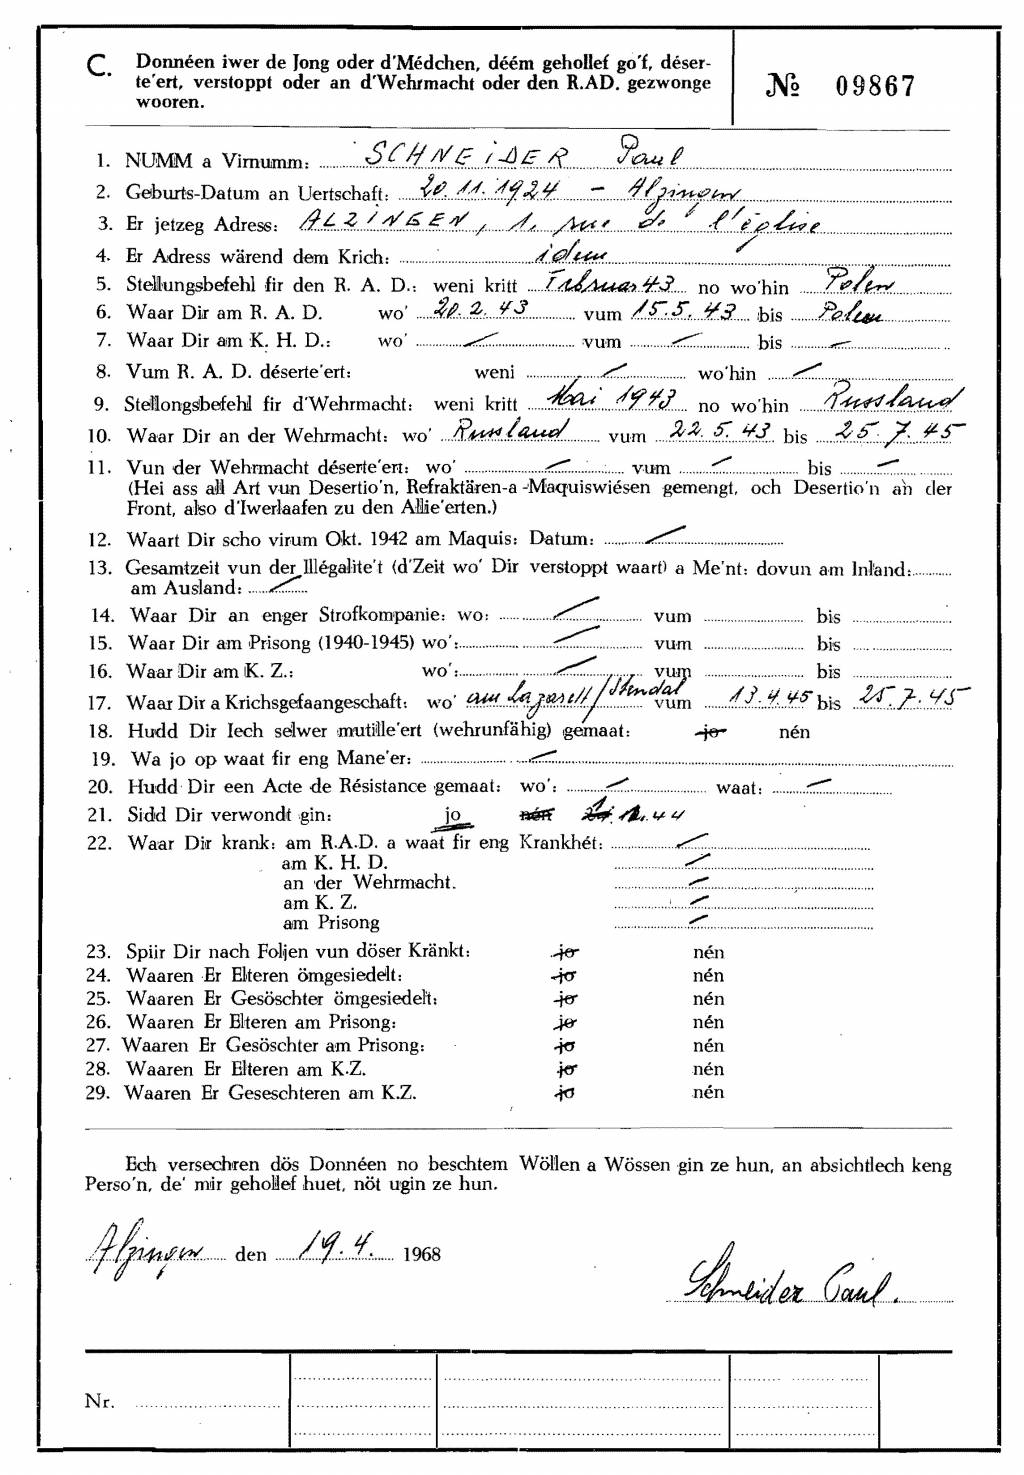 C. Donnéen iwer de Jong oder d'Médchen, déém gehollef go'f, déser-
te'ert, verstoppt oder an d'Wehrmacht oder den R.AD. gezwonge
wooren.
№ 09867
1. NUMM a Virnumm: SCHNEIDER Paul
2. Geburts-Datum an Uertschaft: 20.11.1924 - Alzingen
3. Er jetzeg Adress: ALZINGEN, 1, rue de l'église
4. Er Adress wärend dem Krich: idem
5. Stellungsbefehl fir den R. A. D.: weni kritt Februar 43 no wo'hin Polen
6. Waar Dir am R. A. D. wo' 20.2.43 vum 15.5.43 bis Polen
7. Waar Dir am K. H. D.: wo' — vum — bis —
8. Vum R. A. D. déserte'ert: weni — wo'hin —
9. Stellongsbefehl fir d'Wehrmacht: weni kritt Mai 1943 no wo'hin Russland
10. Waar Dir an der Wehrmacht: wo' Russland vum 22.5.43 bis 25.7.45
11. Vun der Wehrmacht déserte'ert: wo' — vum — bis —
(Hei ass all Art vun Desertio'n, Refraktären-a -Maquiswiésen gemengt, och Desertio'n an der
Front, also d'Iwerlaafen zu den Allie'erten.)
12. Waart Dir scho virum Okt. 1942 am Maquis: Datum: —
13. Gesamtzeit vun der Illégalite't (d'Zeit wo' Dir verstoppt waart) a Me'nt: dovun am Inland:
am Ausland: —
14. Waar Dir an enger Strofkompanie: wo: — vum bis
15. Waar Dir am Prisong (1940-1945) wo': — vum bis
16. Waar Dir am K. Z.: wo': — vum bis
17. Waar Dir a Krichsgefaangeschaft: wo' am Lazarett/Stendal vum 13.4.45 bis 25.7.45
18. Hudd Dir Iech selwer mutille'ert (wehrunfähig) gemaat: jo nén
19. Wa jo op waat fir eng Mane'er: —
20. Hudd Dir een Acte de Résistance gemaat: wo': — waat: —
21. Sidd Dir verwondt gin: jo nén 44
22. Waar Dir krank: am R.A.D. a waat fir eng Krankhét: —
am K. H. D. —
an der Wehrmacht. —
am K. Z. —
am Prisong —
23. Spiir Dir nach Foljen vun döser Kränkt: jo nén
24. Waaren Er Elteren ömgesiedelt: jo nén
25. Waaren Er Gesöschter ömgesiedelt: jo nén
26. Waaren Er Elteren am Prisong: jo nén
27. Waaren Er Gesöschter am Prisong: jo nén
28. Waaren Er Elteren am K.Z. jo nén
29. Waaren Er Geseschteren am K.Z. jo nén
Ech versechren dös Donnéen no beschtem Wöllen a Wössen gin ze hun, an absichtlech keng
Perso'n, de' mir gehollef huet, nöt ugin ze hun.
Alzingen den 19.4. 1968
Schneider Paul.
Nr.